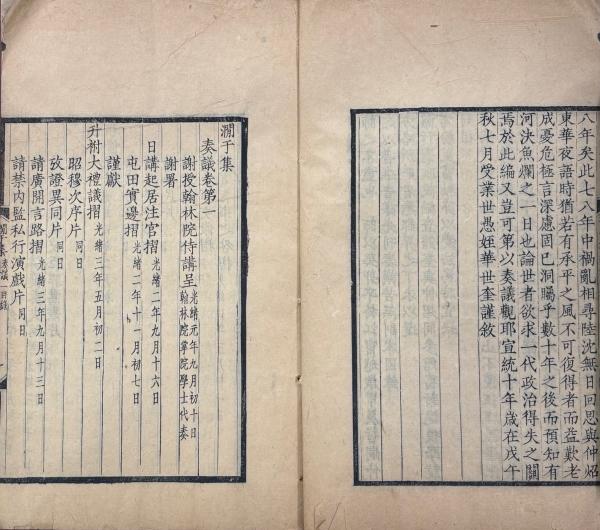 八年矣此七八年中禍亂相尋陸沈無日回思與仲炤
東華夜語時猶若有承平之風不可復得者而益歎老
成憂危極言深慮固已洞矚乎數十年之後而預知有
河決魚爛之一日也論世者欲求一代政治得失之關
焉於此編又豈可第以奏議觀耶宣統十年歲在戊午
秋七月受業世愚姪華世奎謹敘
澗于集
奏議卷第一
謝授翰林院侍講呈 光緒元年九月初十日 翰林院掌院學士代奏
謝署
日講起居注官摺 光緒二年九月十六日
屯田實邊摺 光緒二年十一月初七日
謹獻
升祔大禮議摺 光緒三年五月初二日
昭穆次序片 同日
攷證異同片 同日
請廣開言路摺 光緒三年九月十三日
請禁內監私行演戲片 同日
澗于集 奏議 目錄